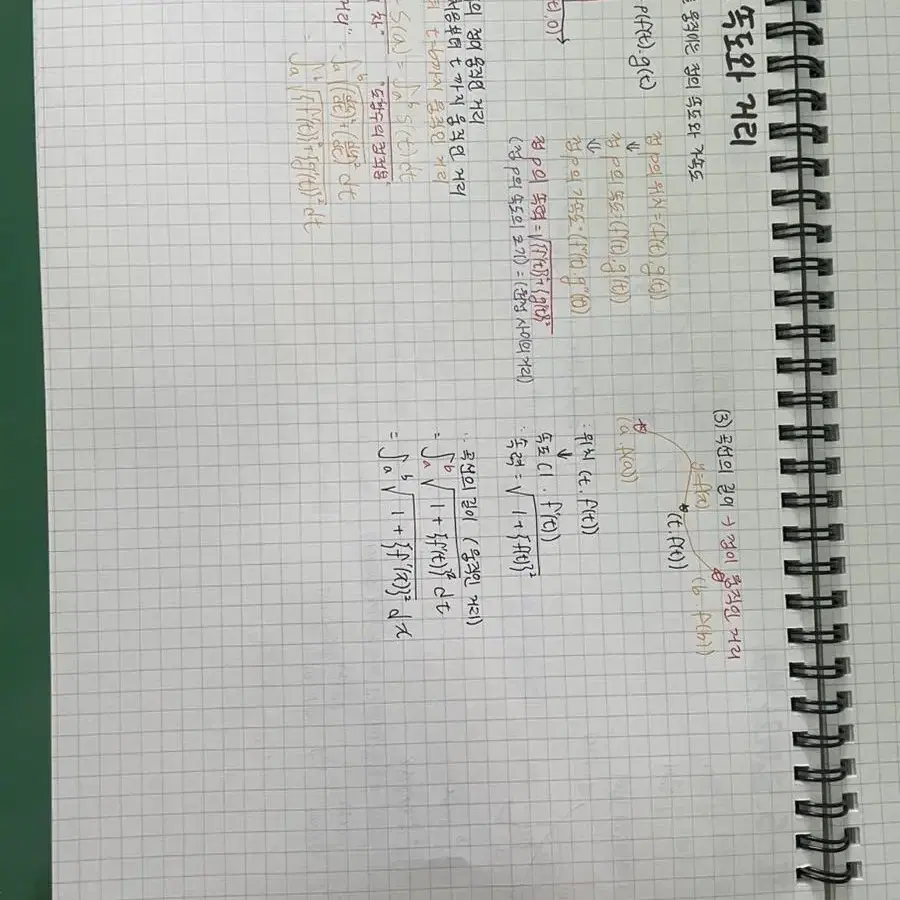 속도와 거리
움직이는 점의 속도와 가속도
P(f(t), g(t))
점 P의 위치 = (f(t), g(t))
↓
점 P의 속도 = (f'(t), g'(t))
↓
점 P의 가속도 = (f''(t), g''(t))
점 P의 속력 = √{f'(t)}²+{g'(t)}²
(점 P의 속도의 크기) = (두점 사이의 거리)
점이 움직인 거리
t까지 움직인 거리
t=b까지 움직인 거리
S(a) = ∫ₐᵇ S'(t) dt
"도함수의 정적분"
거리" = ∫ₐᵇ √(dx/dt)²+(dy/dt)² dt
= ∫ₐᵇ √{f'(t)}²+{g'(t)}² dt
(3) 곡선의 길이 → 점이 움직인 거리
(b, f(b))
y=f(x)
(t, f(t))
(a, f(a))
: 위치 (t, f(t))
↓
속도 (1, f'(t))
∴ 속력 = √1+{f'(t)}²
∴ 곡선의 길이 (움직인 거리)
= ∫ₐᵇ √1+{f'(t)}² dt
= ∫ₐᵇ √1+{f'(x)}² dx